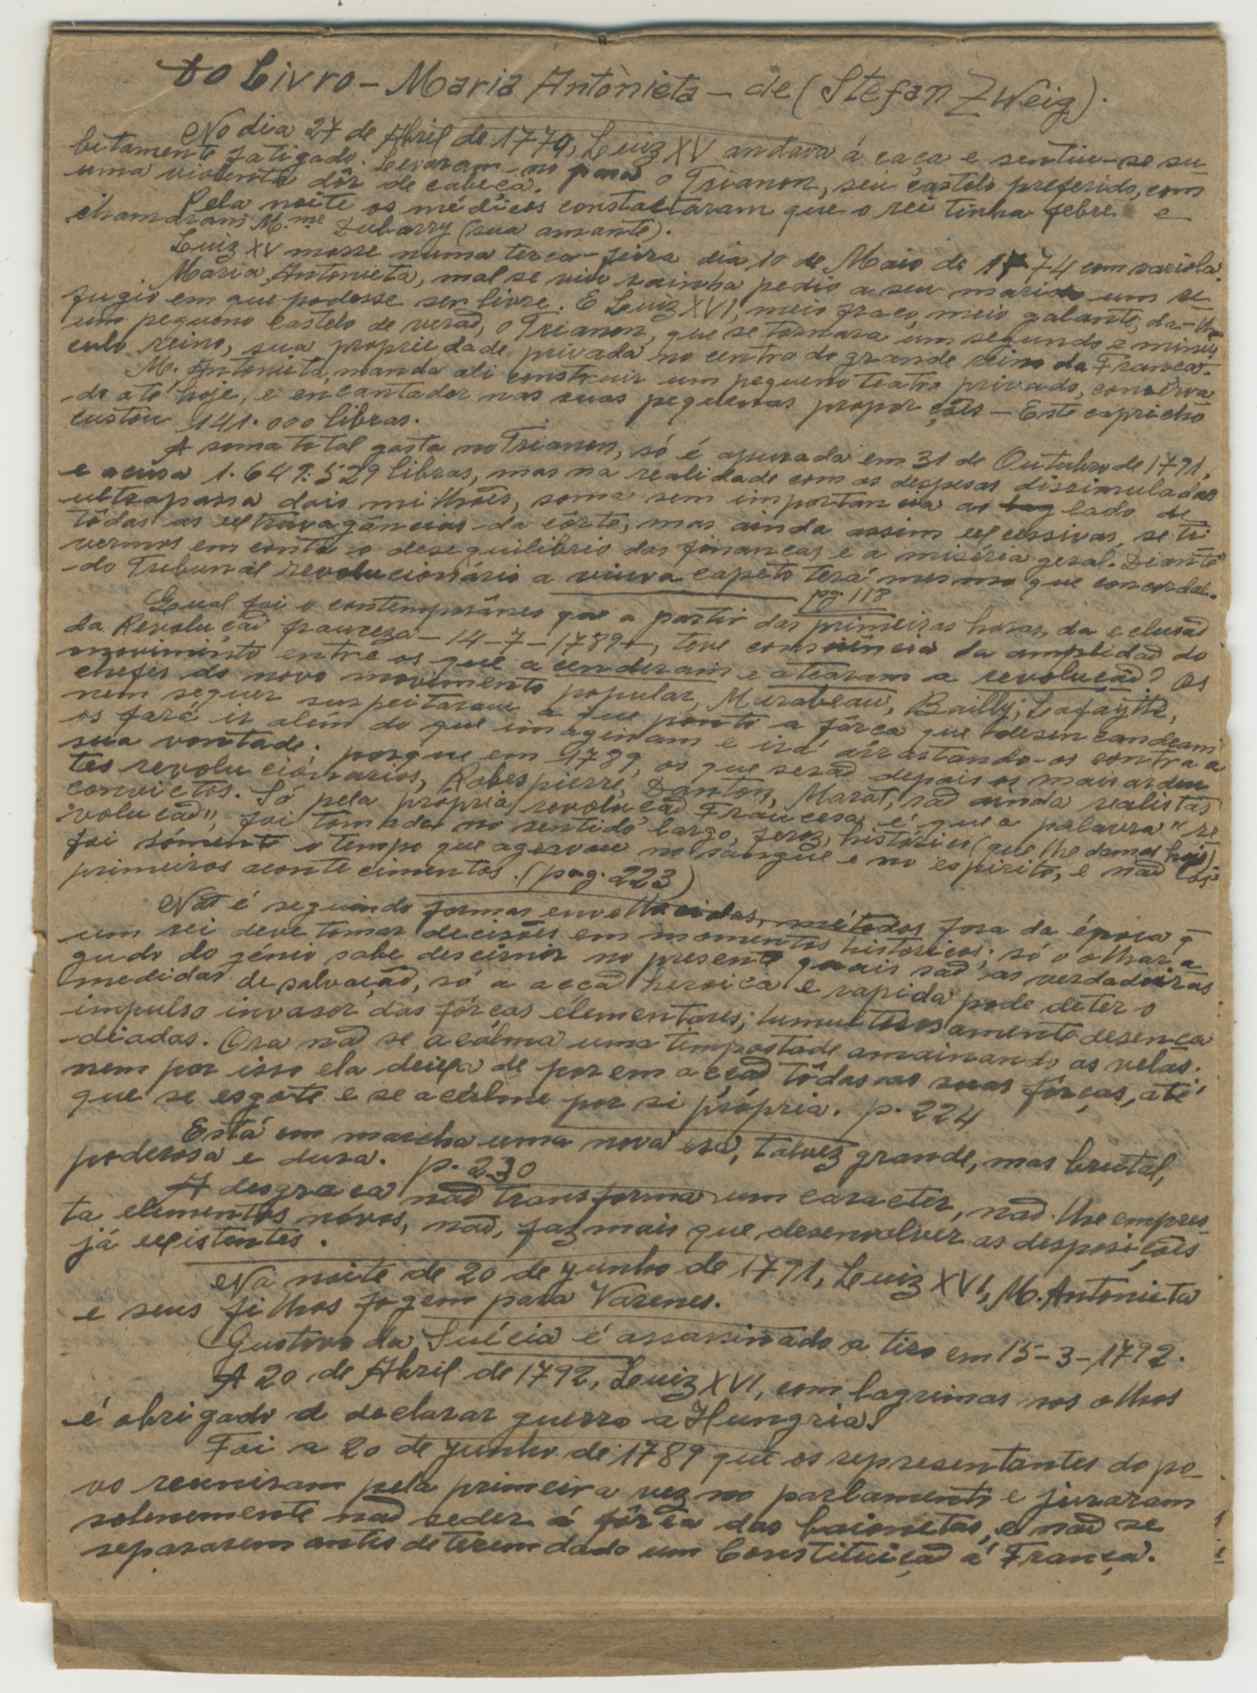 do Livro – Maria Antònieta – de (Stefan Zweig).
No dia 27 de Abril de 1774, Luiz XV andava á caça e sentiu-se su-
bitamente fatigado. Levaram-no para o Trianon, seu castelo preferido, com
uma violenta dôr de cabeça.
Pela noite os médicos constactaram que o rei tinha febre e
chamaram M.me Dubarry (sua amante).
Luiz XV morre numa terca-feira dia 10 de Maio de 1774 com variola.
Maria Antonieta, mal se viu rainha pediu a seu marido um re-
fugio em que podesse ser livre. E Luiz XVI, meio fraco, meio galante, da-lhe
um pequeno castelo de verão, o Trianon, que se tornara um segundo e minús
culo reino, sua propriedade privada no centro do grande reino da França.
M. Antonieta, manda ali construir um pequeno teatro privado, conserva
do até hoje, e encantador nas suas pequenas proporções – Este capricho
custou 141.000 libras.
A soma total gasta no Trianon, só é apurada em 31 de Outubro de 1791,
e acusa 1.649.529 libras, mas na realidade com as despesas dissimuladas
ultrapassa dois milhões, soma sem importancia ao lado de
tôdas as extravagâncias da côrte, mas ainda assim excessivas, se ti
vermos em conta o desequilibrio das finanças e a miséria geral. Diante
do Tribunal revolucionário a viuva capeto terá mesmo que concordar.
pg 118
Qual foi o contemporâneo que a partir das primeiras horas da eclusão
da Revolução franceza – 14-7-1789 –, teve consciência da amplidão do
movimento entre os que acenderam e atearam a revolução? Os
chefes do novo movimento popular, Mirabeau, Bailly, Lafayete,
nem sequer suspeitaram a que ponto a fôrça que desencandeam
os fará ir alem do que imaginam e irá arrastando-os contra a
sua vontade; porque em 1789, os que serão depois os mais arden
tes revolucionarios, Robespierre, Danton, Marat, são ainda realistas
convictos. Só pela própria revolução Francesa é que a palavra "re
volução", foi tomada no sentido largo, feroz, histórico (que lhe damos hoje).
foi sómente o tempo que agravou no sangue e no espirito, e não os
primeiros acontecimentos. (pag. 223)
Não é seguindo formas envelhecidas, métodos fora da época q̃
um rei deve tomar decisões em momentos históricos; só o olhar a
gudo do génio sabe descernir no presente quais são as verdadeiras
medidas de salvação, só a acção heroica e rapida pode deter o
impulso invasor das fôrças elementares, tumultuosamente desenca
deadas. Ora não se acalma uma tempestade amainando as velas.
nem por isso ela deixa de por em acção tôdas as suas fôrças, até
que se esgote e se acalme por si própria. p. 224
Está em marcha uma nova era, talvez grande, mas brutal,
poderosa e dura. p. 230
A desgraça não transforma um caracter, não lhe empres-
ta elementos nóvos, não, faz mais que desenvolver as desposições
já existentes.
Na noite de 20 de junho de 1791, Luiz XVI, M. Antonieta
e seus filhos fogem para Varenes.
Gustavo da Suécia é assassinado a tiro em 15-3-1792.
A 20 de Abril de 1792, Luiz XVI, com lagrimas nos olhos
é obrigado a declarar guerra a Hungria.
Foi a 20 de junho de 1789 que os representantes do po-
vo reuniram pela primeira vez no parlamento e juraram
solenemente não ceder á fôrça das baionetas, e não se
separarem antes de terem dado um Constituição á França.